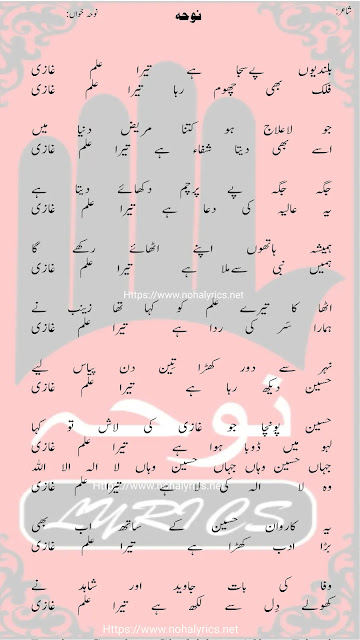 شاعر:
نوحہ
نوحہ خواں:
بلندیوں پہ سجا ہے تیرا علم غازی
فلک بھی چھوم رہا تیرا علم غازی
جو لاعلاج ہو کتنا مریض دنیا میں
اسے بھی دیتا شفاء ہے تیرا علم غازی
جگہ جگہ پے پرچم دکھائے دیتا ہے
یہ عالیہ کی دعا ہے تیرا علم غازی
ہمیشہ ہاتھوں اپنے اٹھائے رکھے گا
ہمیں نبی سے ملا ہے تیرا علم غازی
Https://www.nohalyrics.net
اٹھا کا تیرے علم کو کہا تھا زینب نے
ہمارا سَر کی ردا ہے تیرا علم غازی
نہر سے دور کھڑا تین دن پیاس لیے
حسین دیکھ رہا ہے تیرا علم غازی
نوحہ
حسین پونچا جو غازی کی لاش تو کہا
لہو میں ڈوبا ہوا ہے تیرا علم غازی
جہاں حسین وہاں جہاں حسین وہاں لا الہ الا اللہ
Https://www.nohalyrics.net
وہ لا الہ کی لا ہے تیرا علم غازی
LYRICS
یہ کاروان حسین کے ساتھ اب بھی
بڑا ادب کھڑا ہے تیرا علم غازی
وفا کی بات جاوید اور شاہد نے
کھولے دِل سے لکھ ہے تیرا علم غازی
Https://www.nohalyrics.net